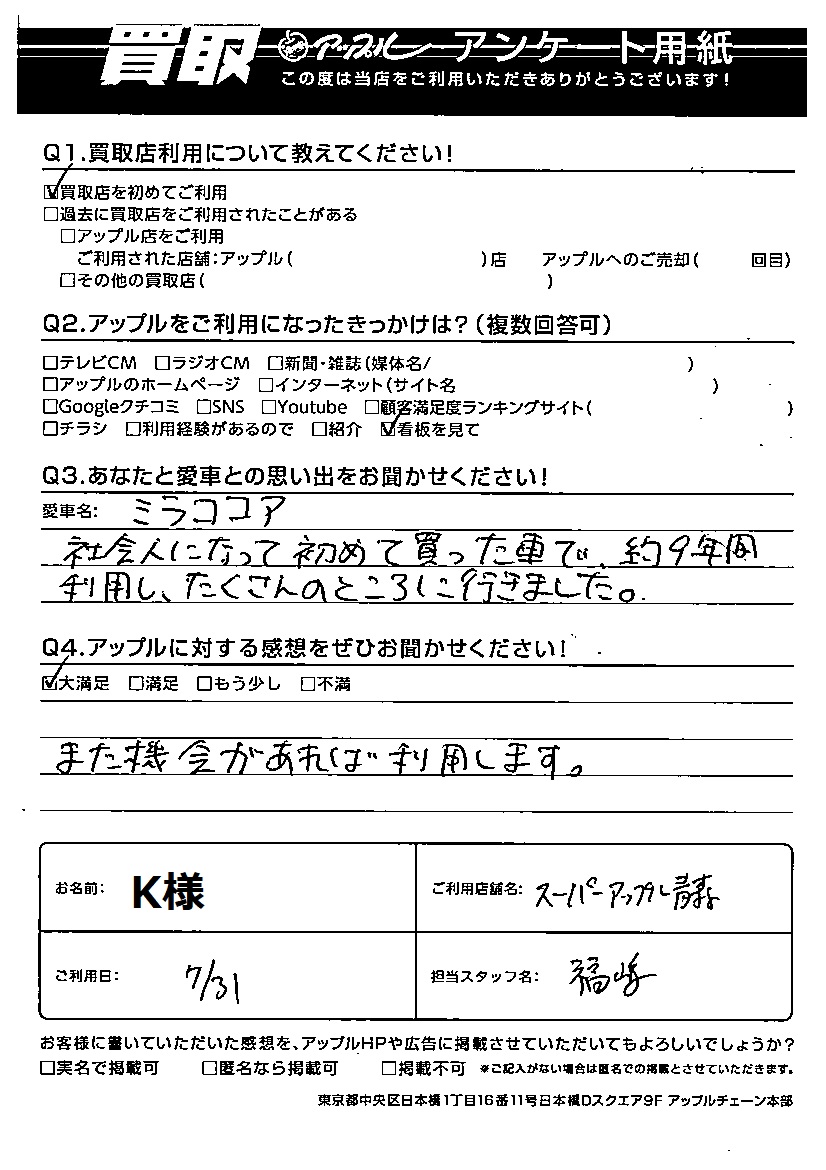 買取 アップル アンケート用紙
この度は当店をご利用いただきありがとうございます!
Q1.買取店利用について教えてください!
☑買取店を初めてご利用
□過去に買取店をご利用されたことがある
□アップル店をご利用
ご利用された店舗:アップル( )店 アップルへのご売却( 回目)
□その他の買取店( )
Q2.アップルをご利用になったきっかけは?(複数回答可)
□テレビCM □ラジオCM □新聞・雑誌(媒体名/ )
□アップルのホームページ □インターネット(サイト名 )
□Googleクチコミ □SNS □Youtube □顧客満足度ランキングサイト( )
□チラシ □利用経験があるので □紹介 ☑看板を見て
Q3.あなたと愛車との思い出をお聞かせください!
愛車名: ミラココア
社会人になって初めて買った車で、約9年間
利用し、たくさんのところに行きました。
Q4.アップルに対する感想をぜひお聞かせください!
☑大満足 □満足 □もう少し □不満
また機会があれば利用します。
お名前: K様 ご利用店舗名: スーパーアップル青森
ご利用日: 7/31 担当スタッフ名: 福嶋
お客様に書いていただいた感想を、アップルHPや広告に掲載させていただいてもよろしいでしょうか?
□実名で掲載可 □匿名なら掲載可 □掲載不可 ※ご記入がない場合は匿名での掲載とさせていただきます。
東京都中央区日本橋1丁目16番11号日本橋Dスクエア9F アップルチェーン本部